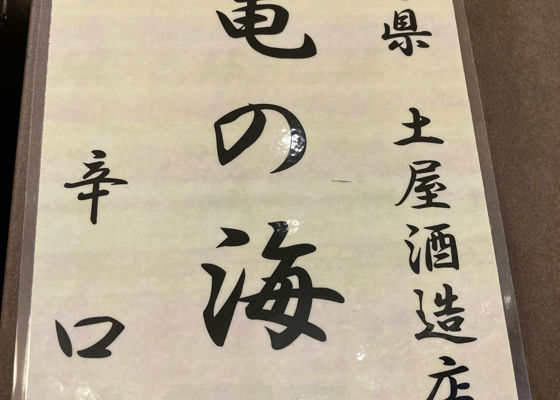 県 土屋酒造店
亀の海
辛口